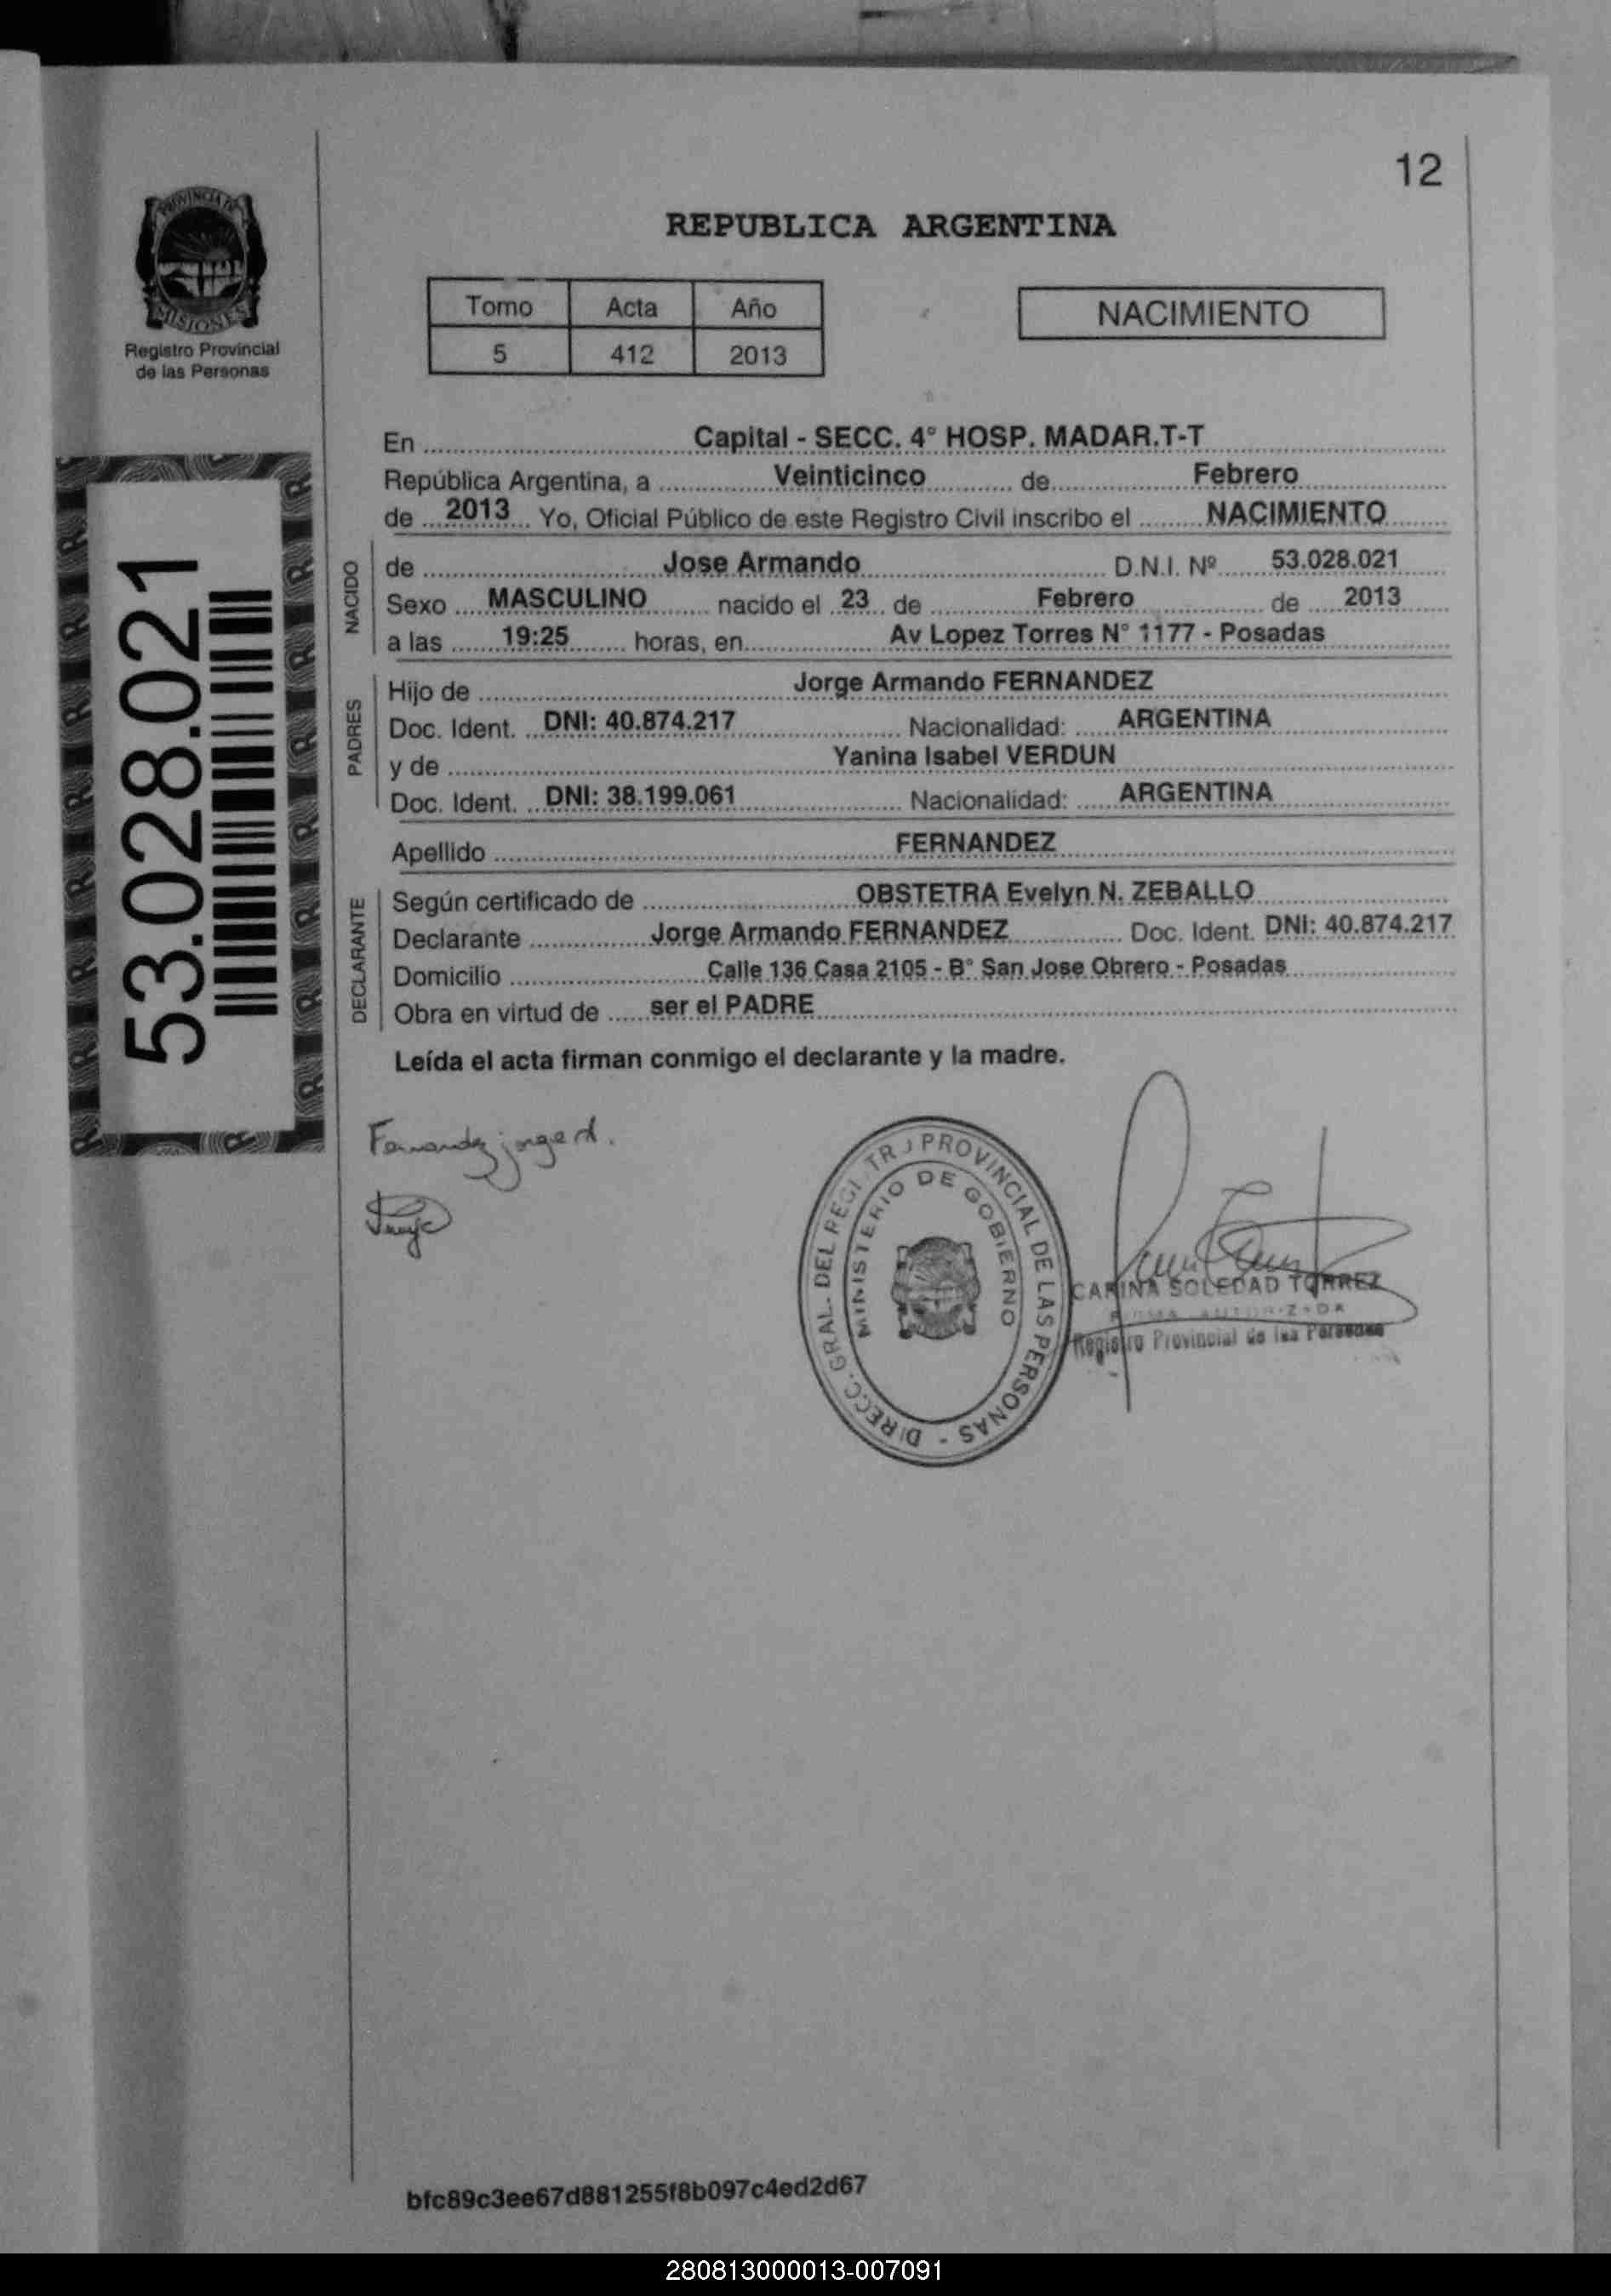 12
PROVINCIA DE
MISIONES
Registro Provincial
de las Personas
REPUBLICA ARGENTINA
Tomo Acta Año
5 412 2013
NACIMIENTO
53.028.021
En Capital - SECC. 4° HOSP. MADAR.T-T
República Argentina, a Veinticinco de Febrero
de 2013 Yo, Oficial Público de este Registro Civil inscribo el NACIMIENTO
NACIDO
de Jose Armando D.N.I. Nº 53.028.021
Sexo MASCULINO nacido el 23 de Febrero de 2013
a las 19:25 horas, en Av Lopez Torres N° 1177 - Posadas
PADRES
Hijo de Jorge Armando FERNANDEZ
Doc. Ident. DNI: 40.874.217 Nacionalidad: ARGENTINA
y de Yanina Isabel VERDUN
Doc. Ident. DNI: 38.199.061 Nacionalidad: ARGENTINA
Apellido FERNANDEZ
DECLARANTE
Según certificado de OBSTETRA Evelyn N. ZEBALLO
Declarante Jorge Armando FERNANDEZ Doc. Ident. DNI: 40.874.217
Domicilio Calle 136 Casa 2105 - B° San Jose Obrero - Posadas
Obra en virtud de ser el PADRE
Leída el acta firman conmigo el declarante y la madre.
Fernandez jorge A.
DIRECC. GRAL. DEL REGISTRO PROVINCIAL DE LAS PERSONAS -
MINISTERIO DE GOBIERNO
CARINA SOLEDAD TORREZ
FIRMA AUTORIZADA
Registro Provincial de las Personas
bfc89c3ee67d881255f8b097c4ed2d67
280813000013-007091